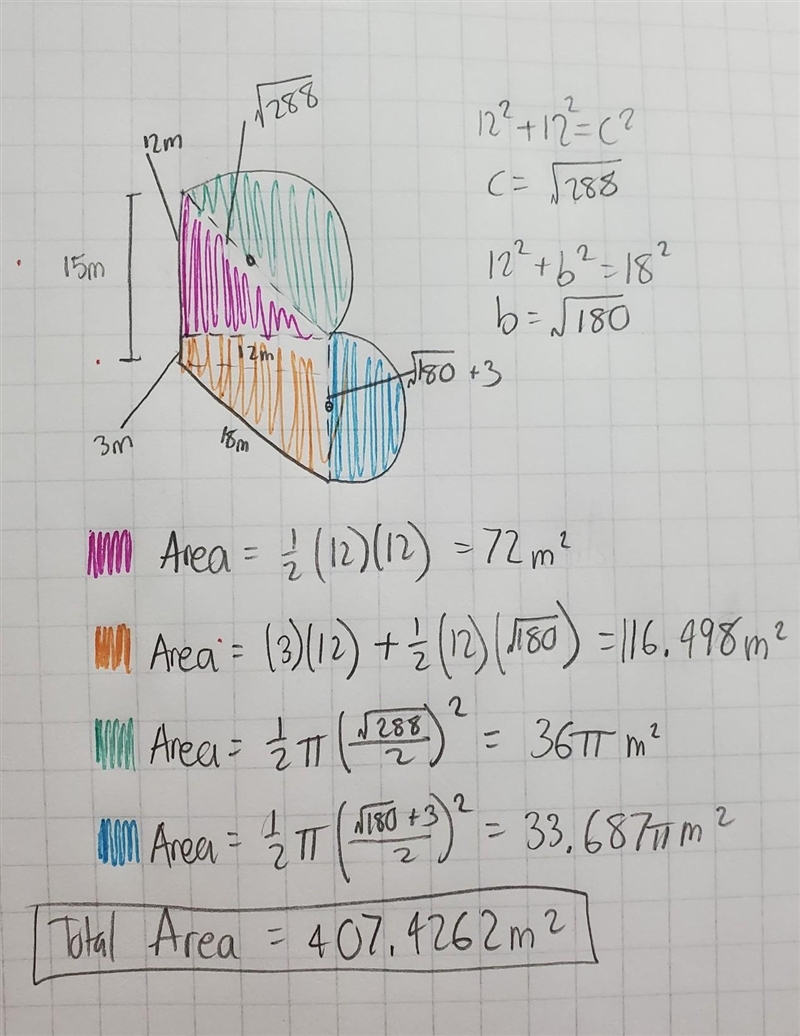 √288
12m
15m
12m
√180 + 3
3m
18m
12² + 12² = c²
c = √288
12² + b² = 18²
b = √180
Area = 1/2 (12)(12) = 72 m²
Area = (3)(12) + 1/2 (12)(√180) = 116.498 m²
Area = 1/2 π (√288/2)² = 36π m²
Area = 1/2 π (√180 + 3/2)² = 33.687π m²
Total Area = 407.4262 m²